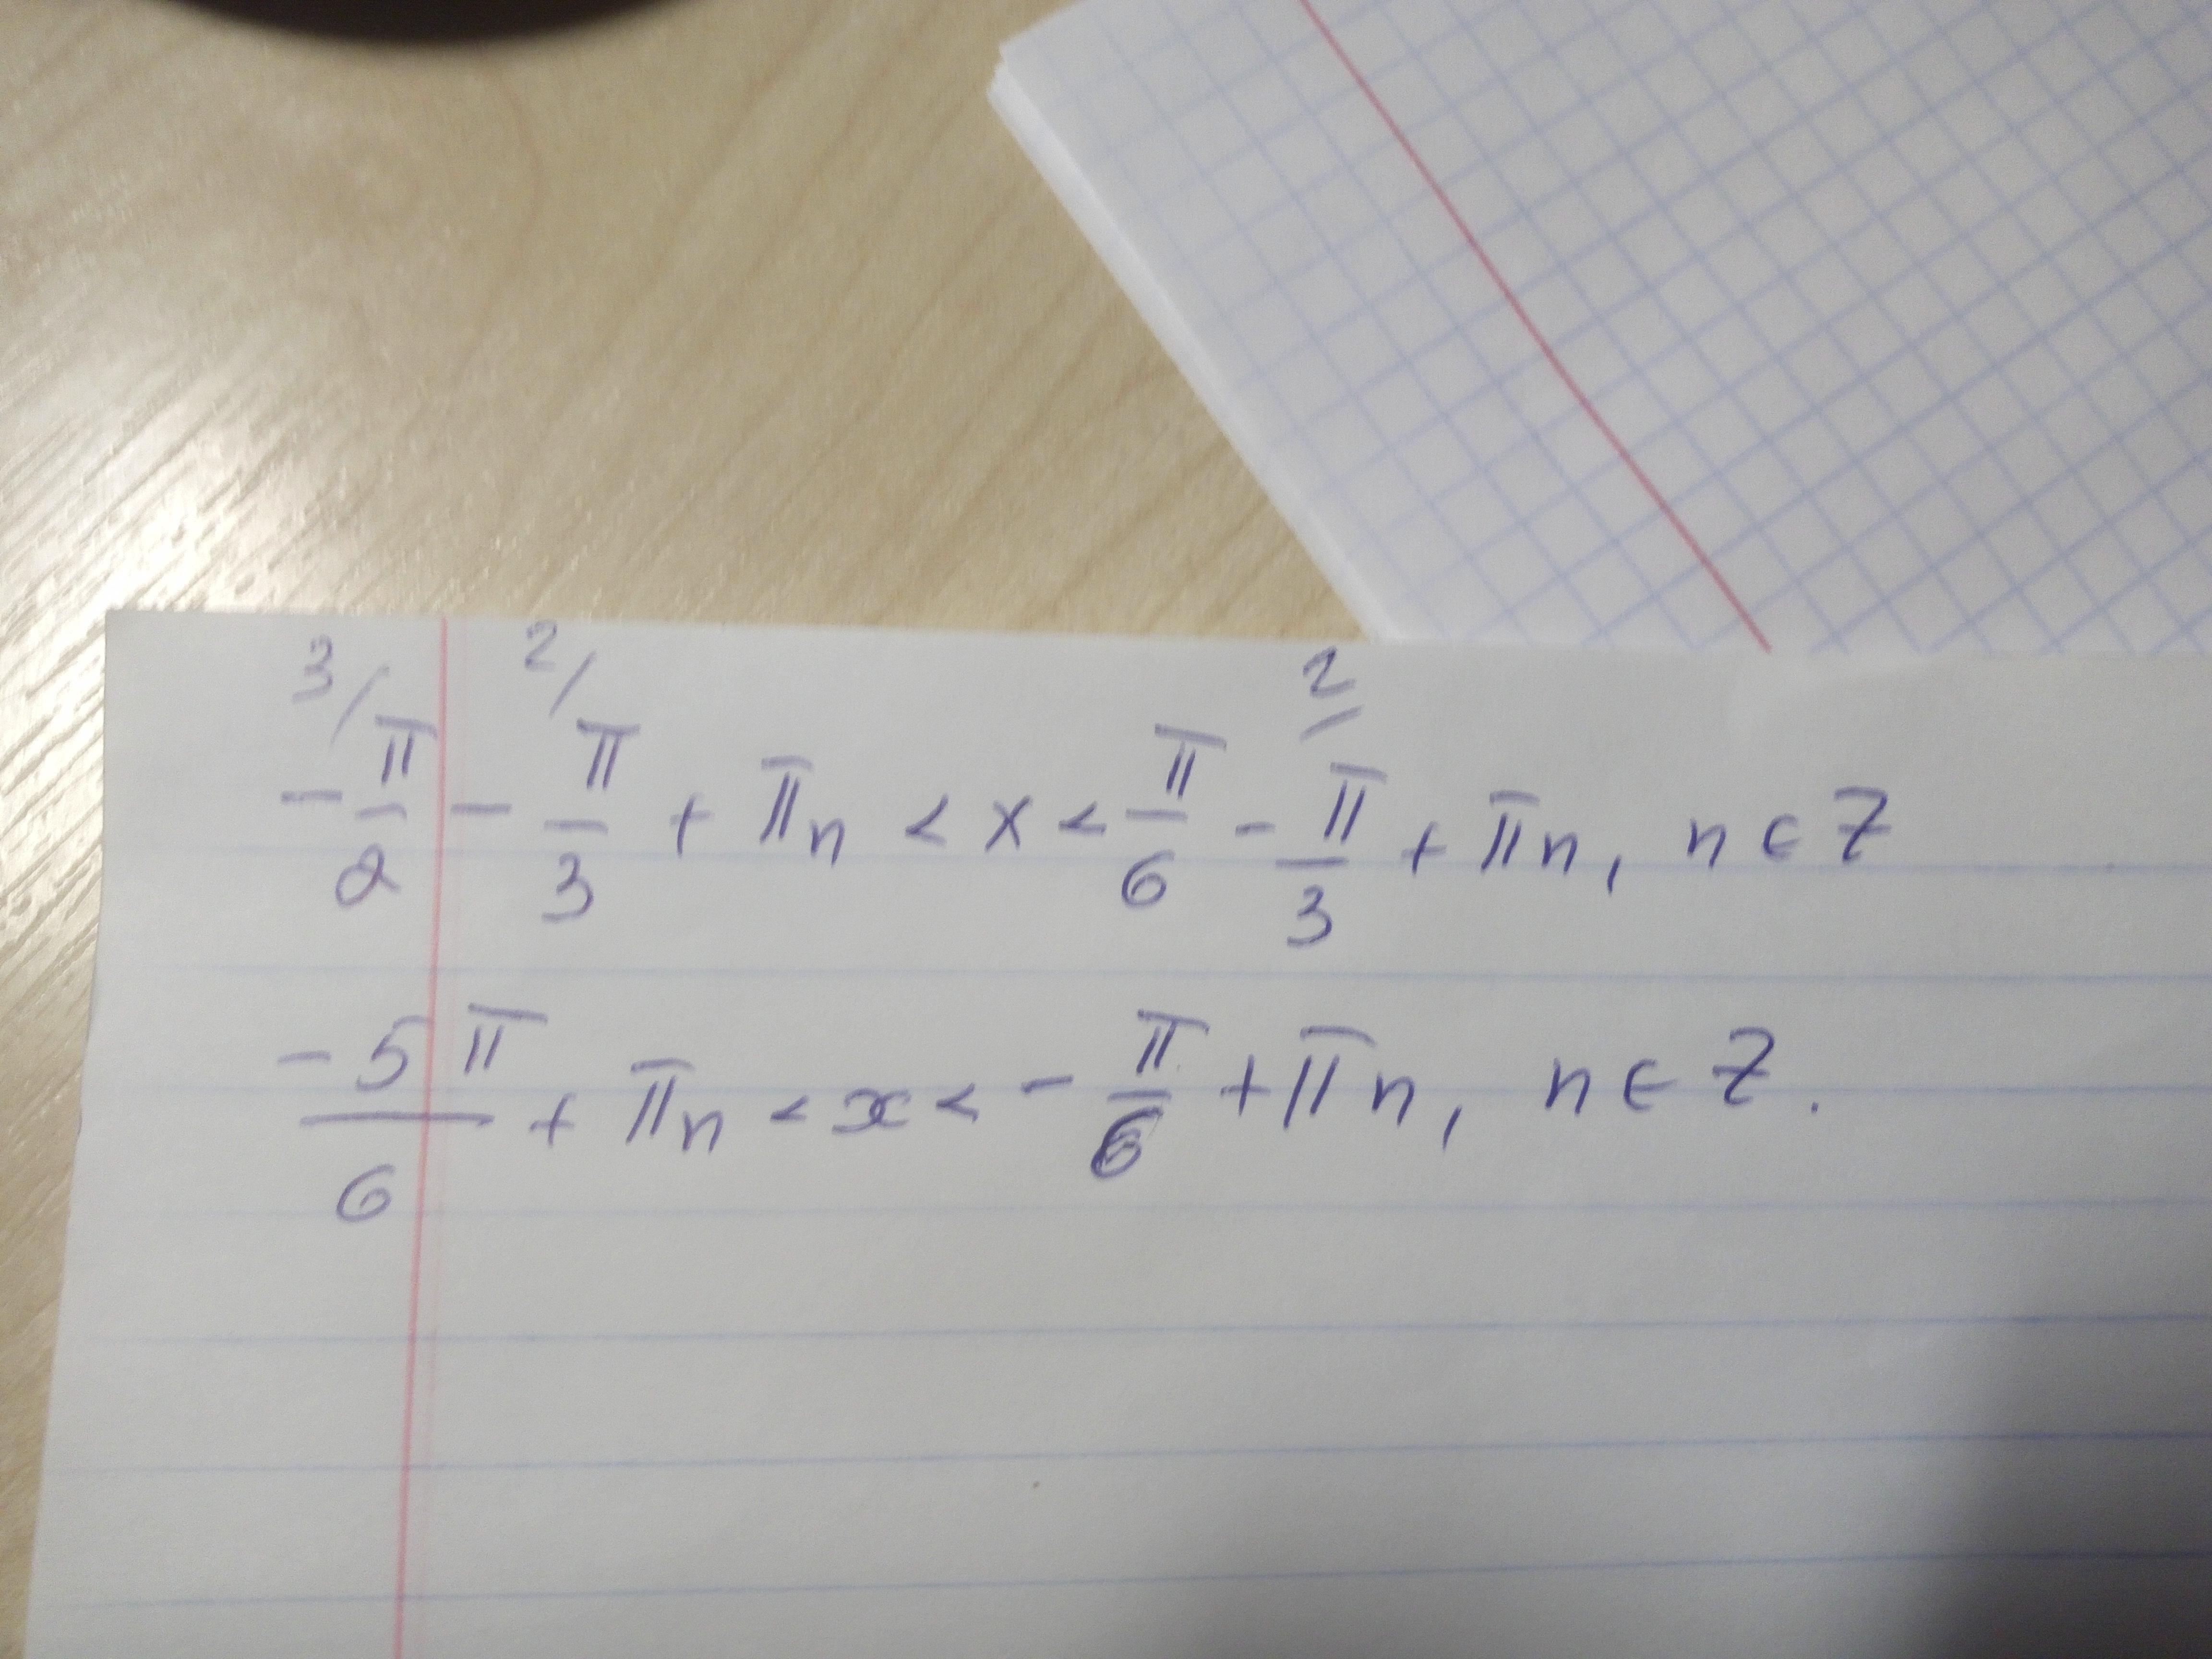 -3/π/2 - 2/π/3 + πn < x < π/6 - 2/π/3 + πn, n ∈ Z
-5π/6 + πn < x < - π/6 + πn, n ∈ Z.